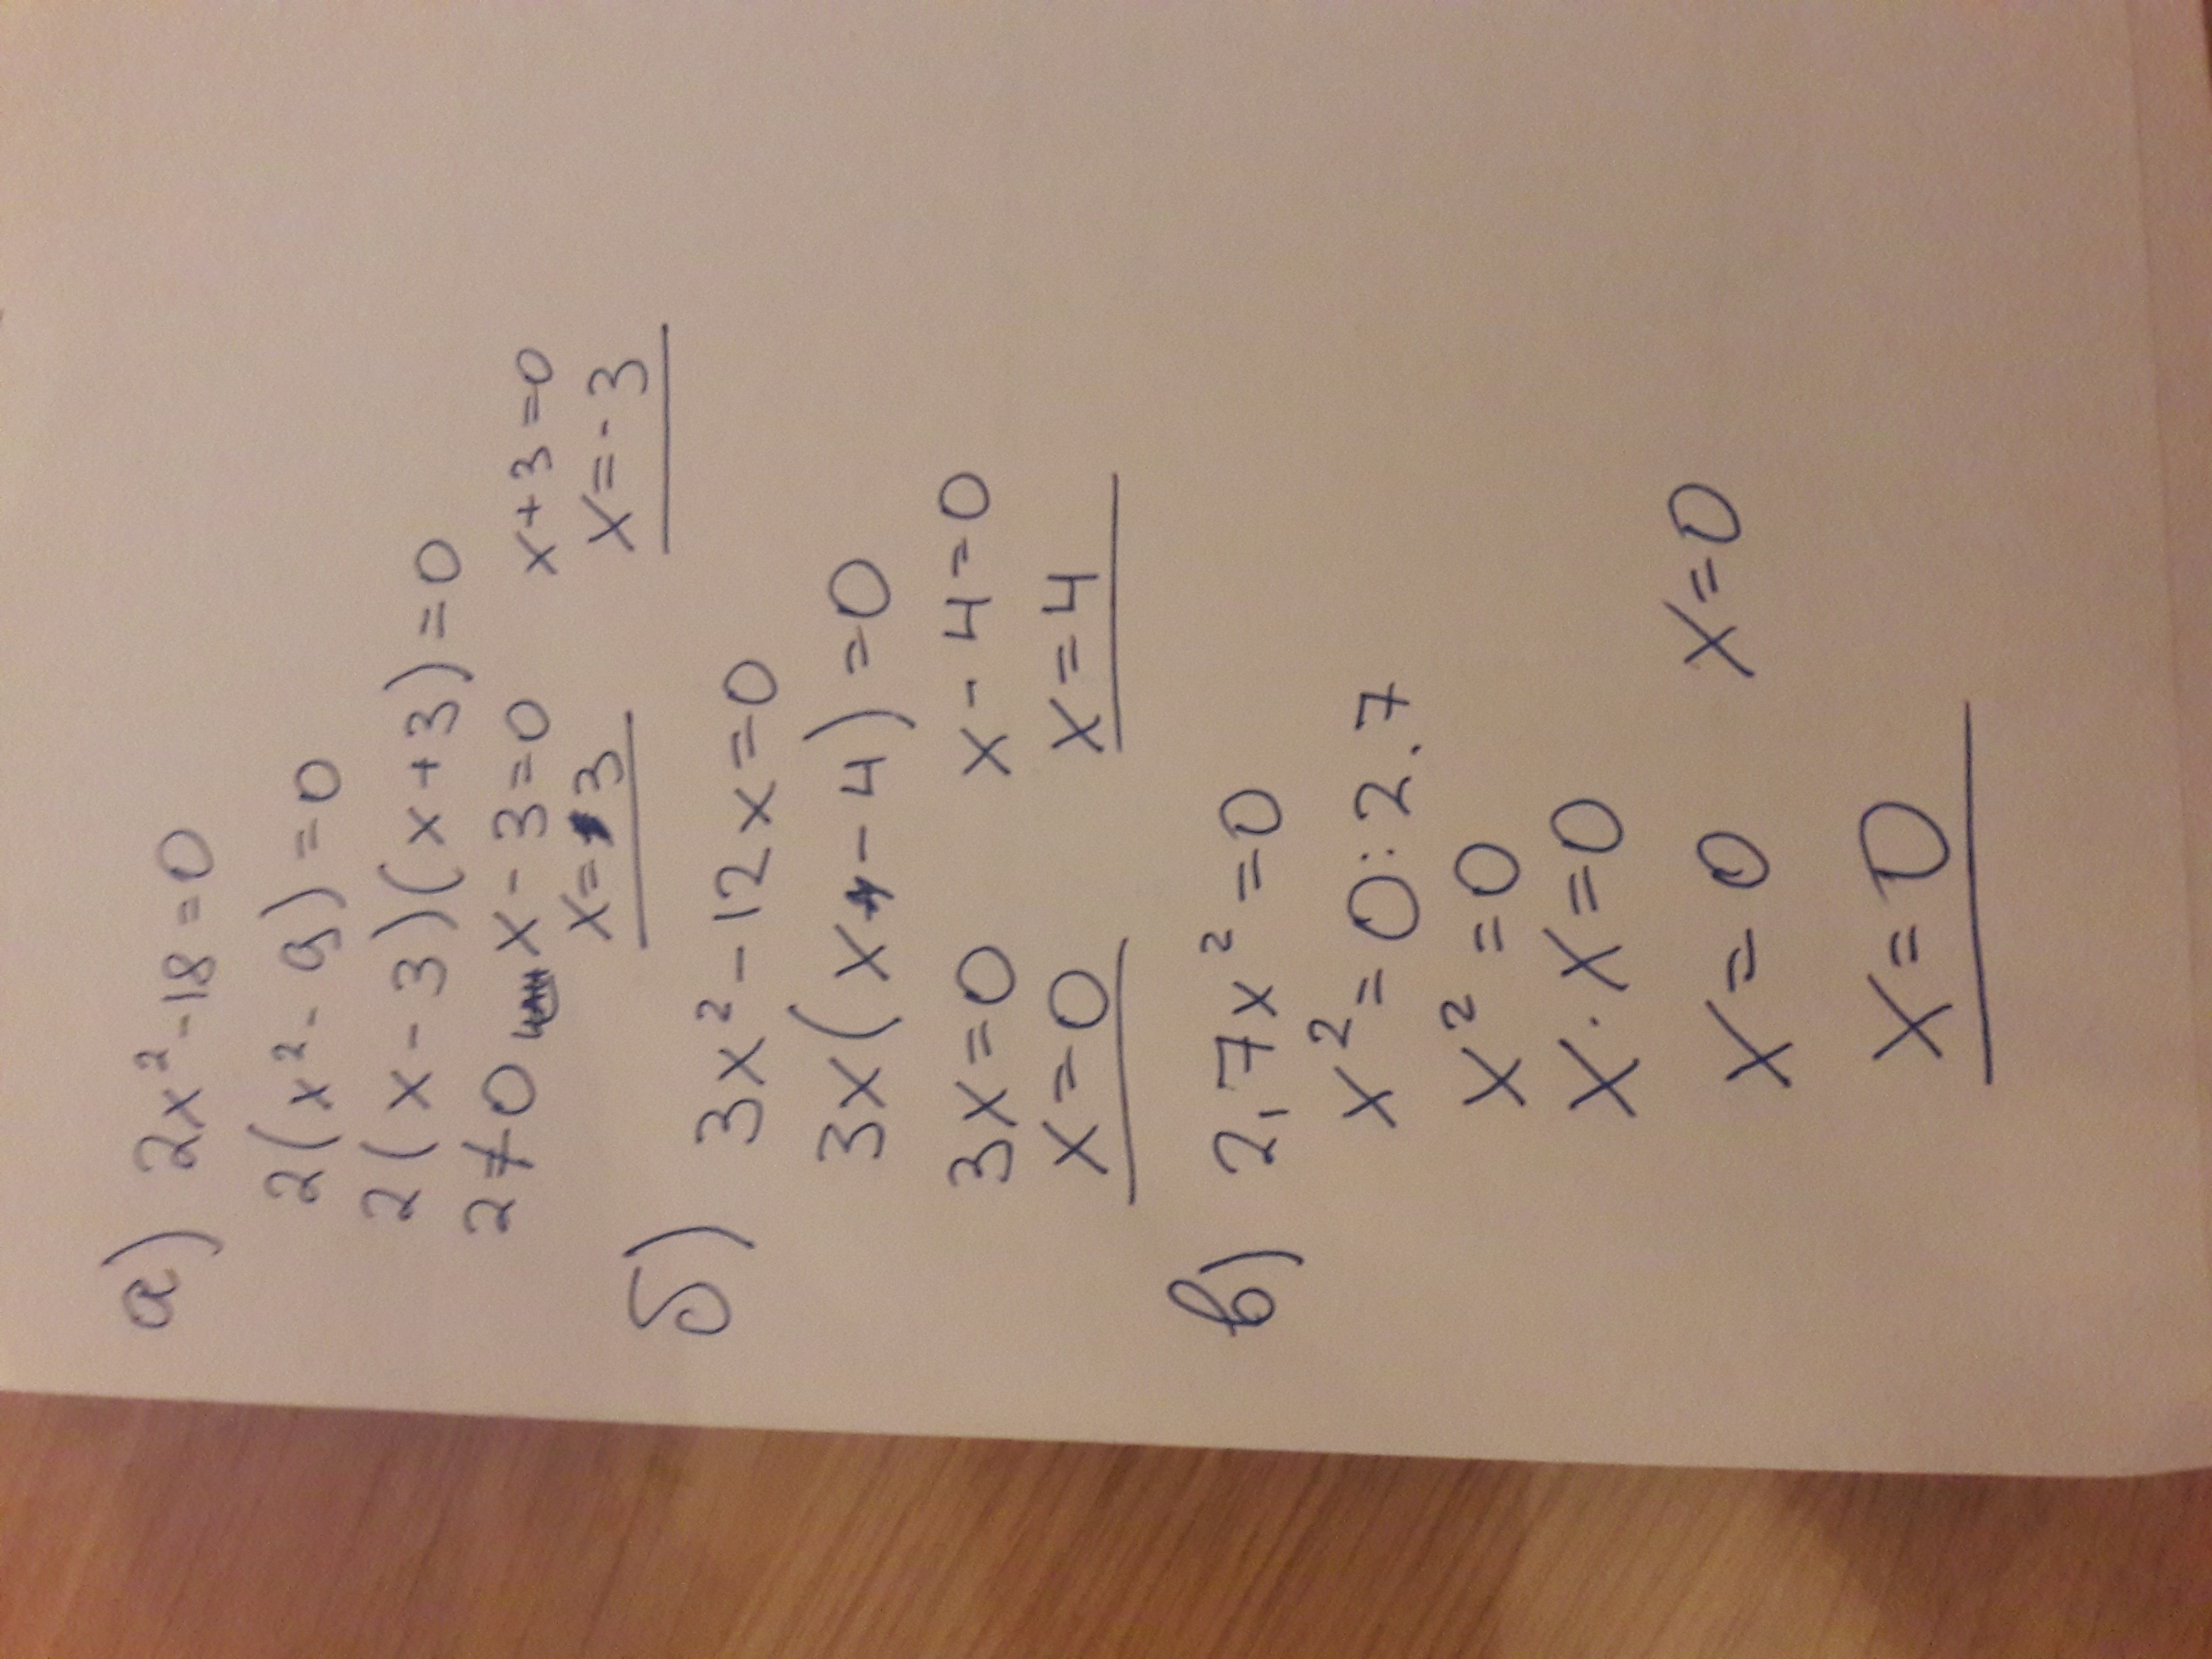 а) 2x²-18=0
2(x²-9)=0
2(x-3)(x+3)=0
2≠0 x-3=0 x+3=0
x=3 x=-3
б) 3x²-12x=0
3x(x-4)=0
3x=0 x-4=0
x=0 x=4
в) 2,7x²=0
x²=0:2.7
x²=0
x·x=0
x=0 x=0
x=0